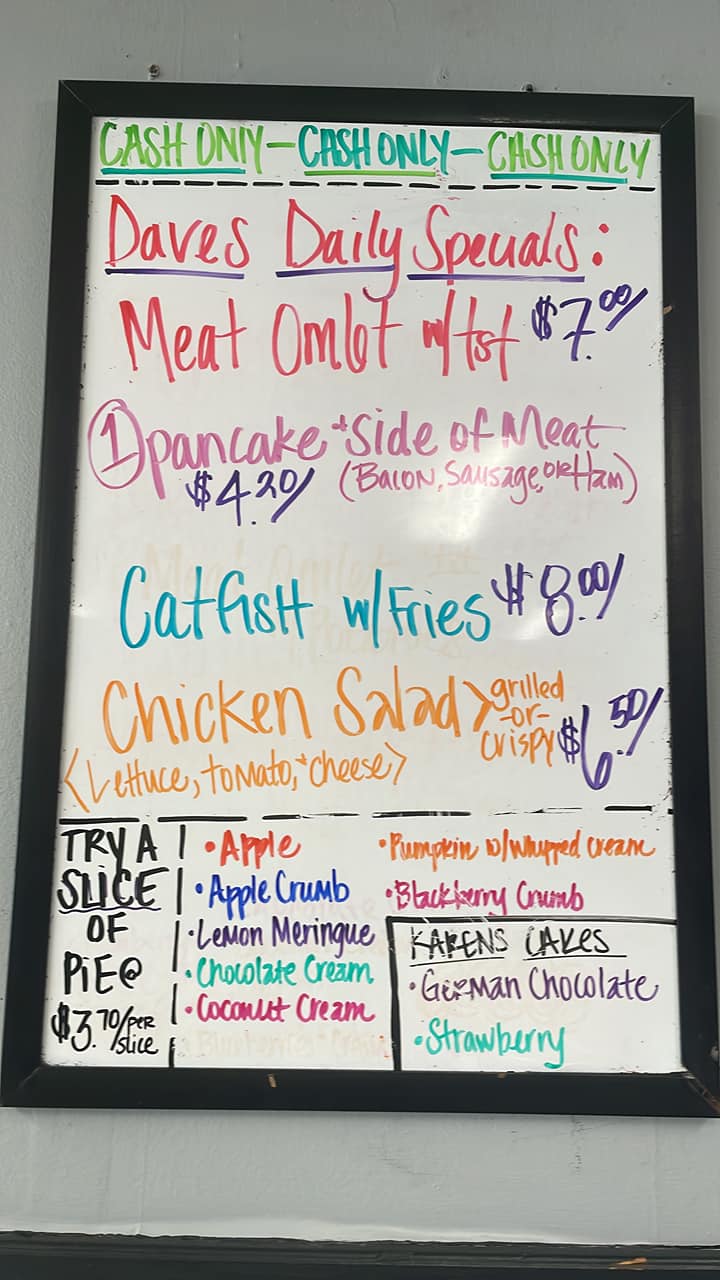 CASH ONlY - CASH ONLY - CASH ONLY
Daves Daily Specials:
Meat Omlet w/tst $7.00/
① pancake + Side of Meat
$4.20/ (Bacon, Sausage, or Ham)
CatfisH w/Fries $8.00/
Chicken Salad > grilled -or- crispy $6.50/
<Lettuce, tomato, + cheese>
TRY A
SLICE
OF
PiE@
$3.70/per slice
• Apple
• Apple Crumb
• Lemon Meringue
• Chocolate Cream
• Coconut Cream
• Pumpkin w/Whipped cream
• Blackberry Crumb
KARENS CAKES
• German Chocolate
• Strawberry